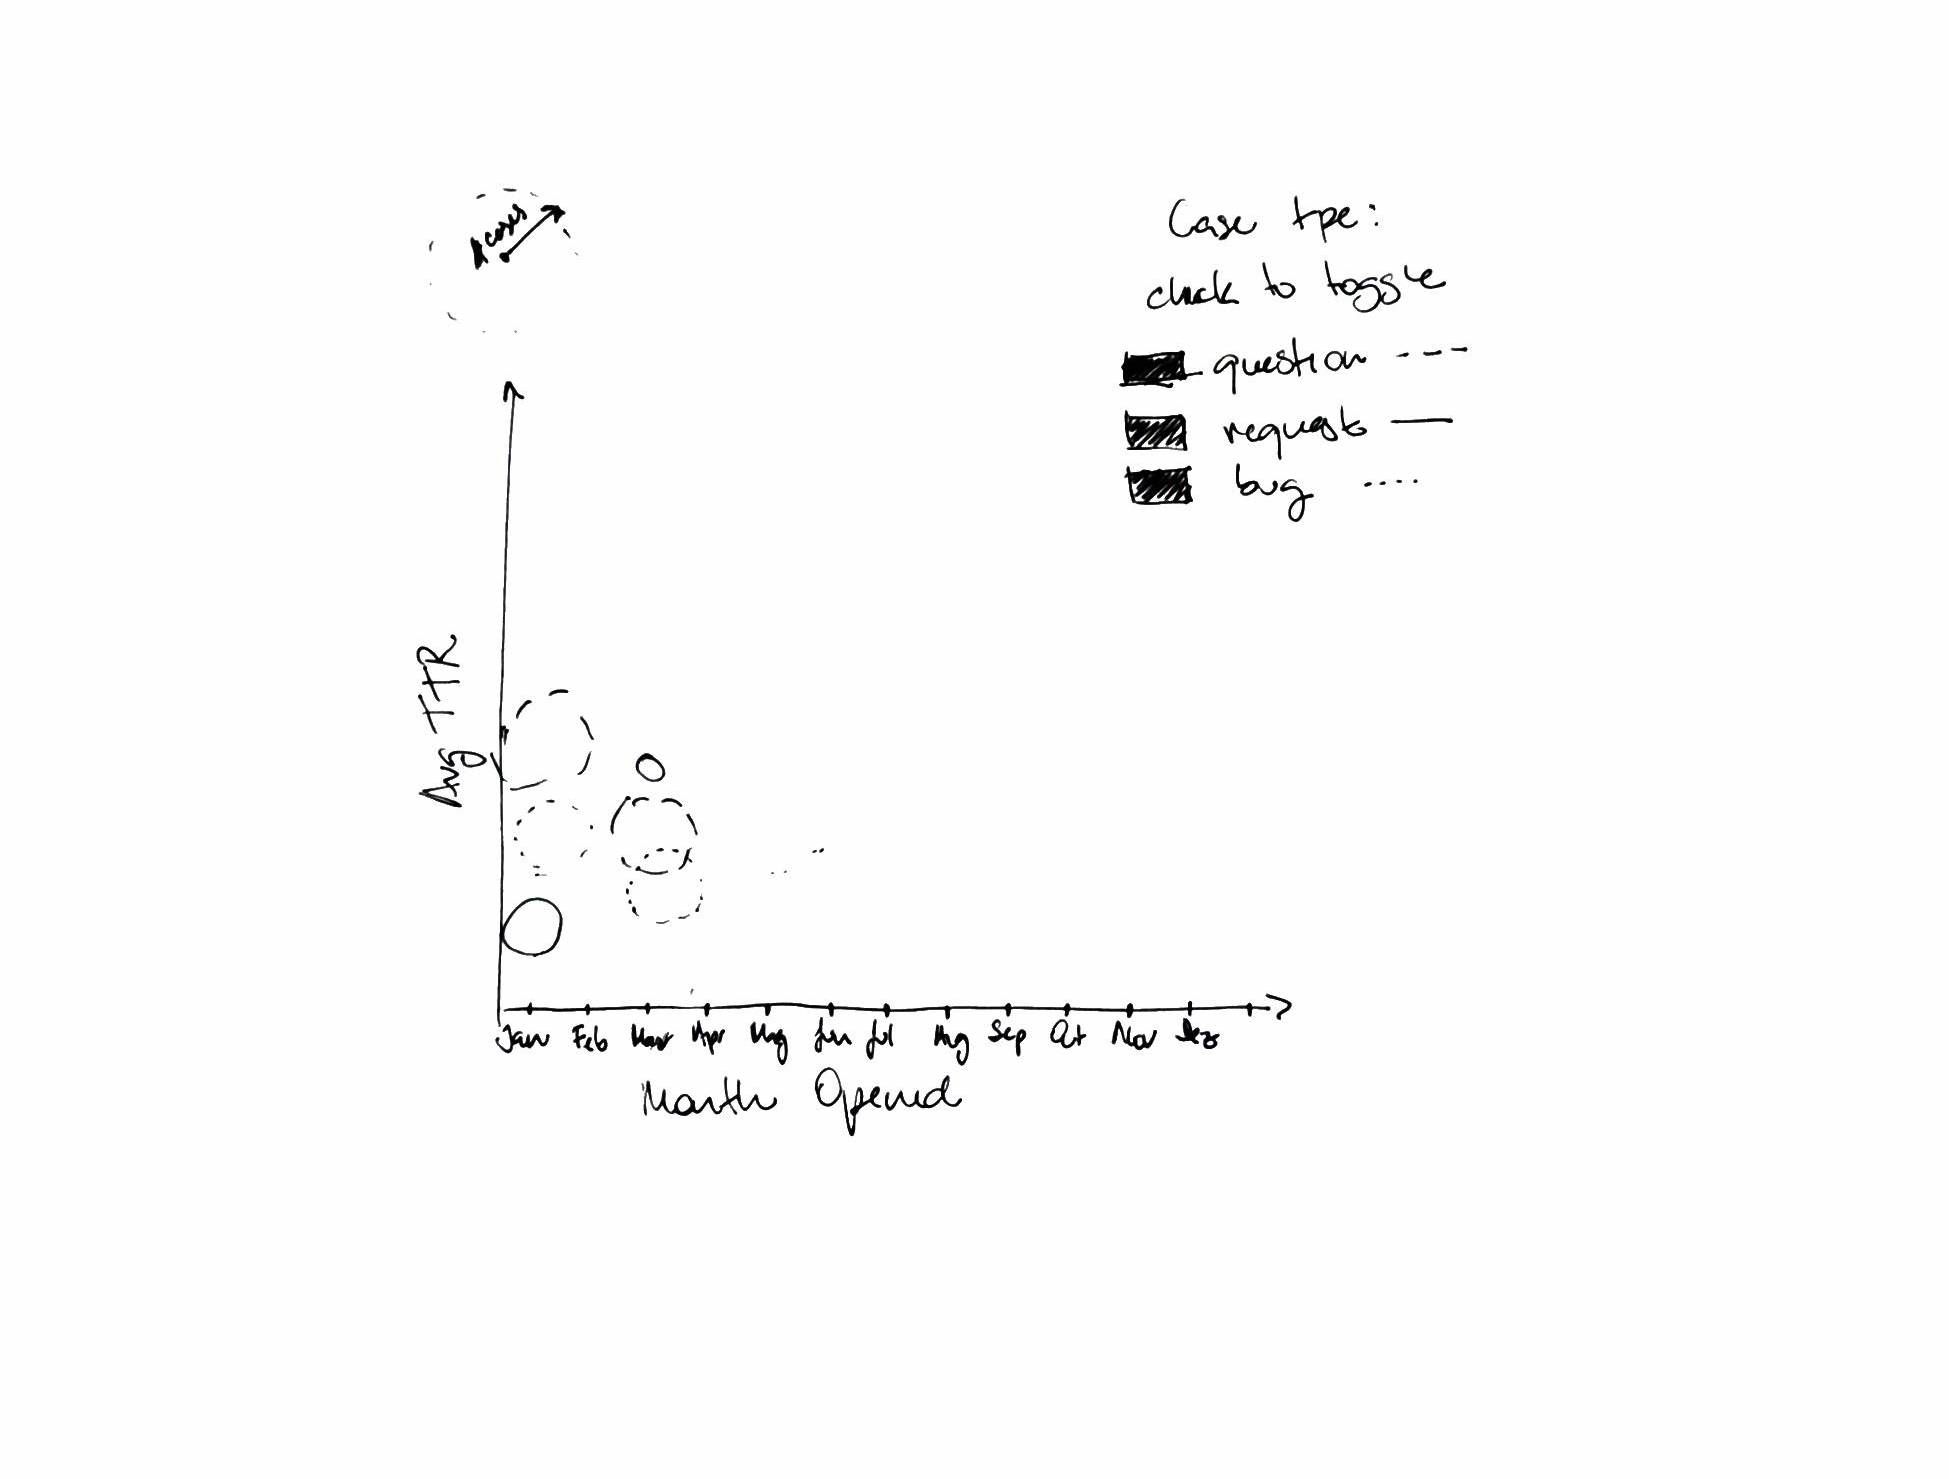 # cases
Case tpe:
click to toggle
question
requests
bug
Avg TTR
Jan Feb Mar Apr May Jun Jul Aug Sep Oct Nov Dez
Month Opened